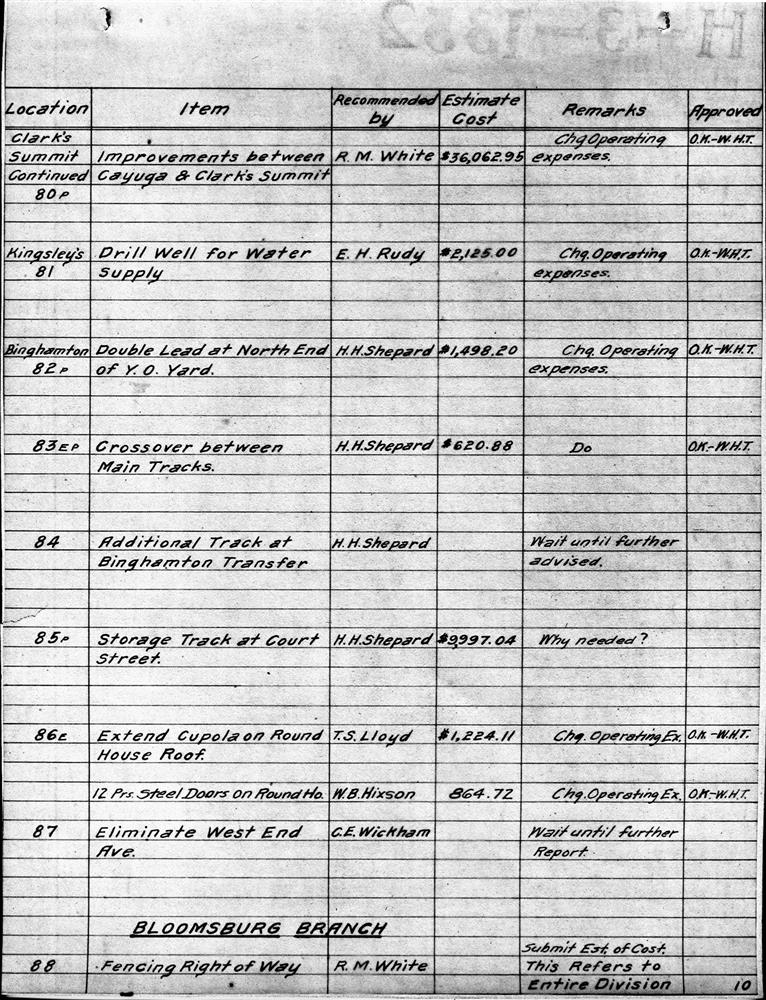 H-3-1352
Location Item Recommended by Estimate Cost Remarks Approved
Clark's Chg Operating O.K.-W.H.T.
Summit Improvements between R. M. White $36,062.95 expenses.
Continued Cayuga & Clark's Summit
80P
Kingsley's Drill Well for Water E. H. Rudy $2,125.00 Chg. Operating O.K.-W.H.T.
81 Supply expenses.
Binghamton Double Lead at North End H.H.Shepard $1,498.20 Chg. Operating O.K.-W.H.T.
82P of Y. O. Yard. expenses.
83EP Crossover between H.H.Shepard $620.88 Do O.K.-W.H.T.
Main Tracks.
84 Additional Track at H.H.Shepard Wait until further
Binghamton Transfer advised.
85P Storage Track at Court H.H.Shepard $9,997.04 Why needed?
Street.
86E Extend Cupola on Round T.S. Lloyd $1,224.11 Chg. Operating Ex. O.K.-W.H.T.
House Roof.
12 Prs. Steel Doors on Round Ho. W.B. Hixson 864.72 Chg. Operating Ex. O.K.-W.H.T.
87 Eliminate West End C.E. Wickham Wait until further
Ave. Report.
BLOOMSBURG BRANCH
Submit Est. of Cost.
88 Fencing Right of Way R. M. White This Refers to
Entire Division 10